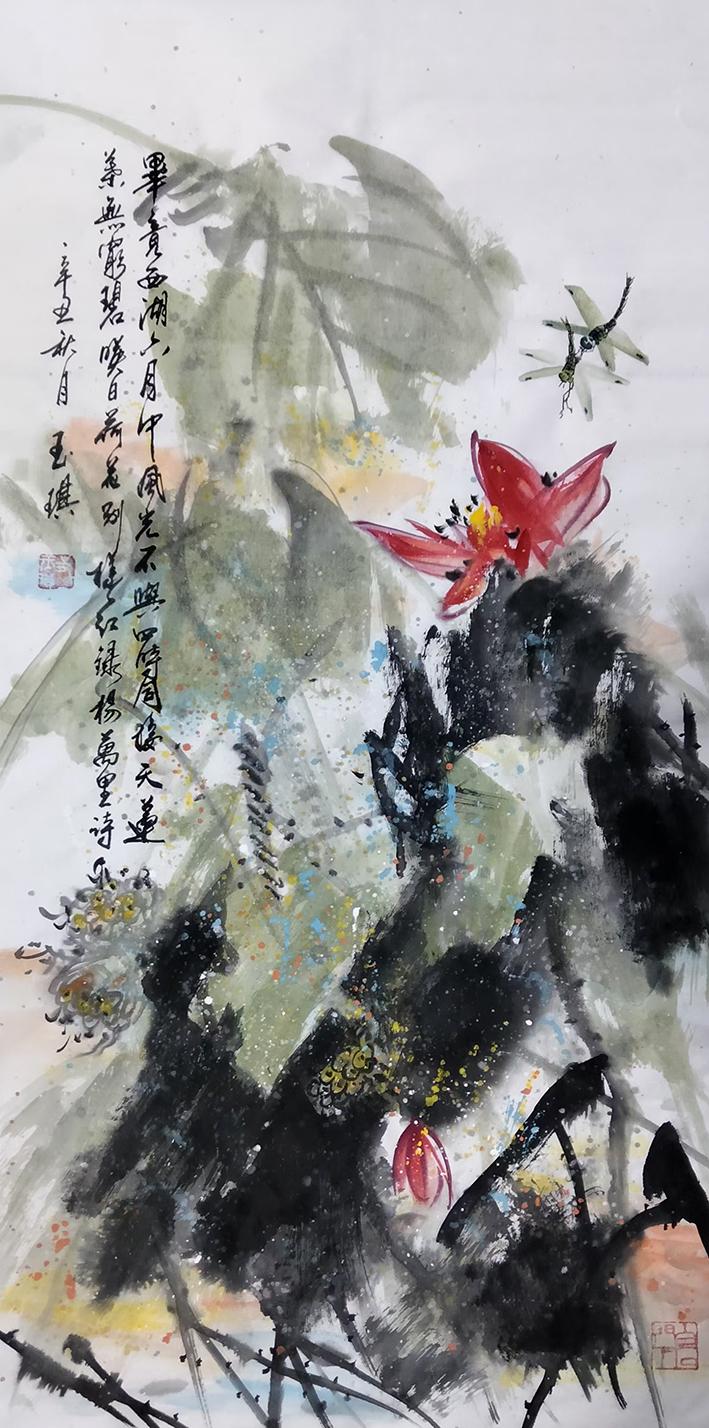 畢竟西湖六月中風光不與四時同接天蓮
葉無窮碧暎日荷花别樣红録楊萬里詩
辛丑秋月 玉琪